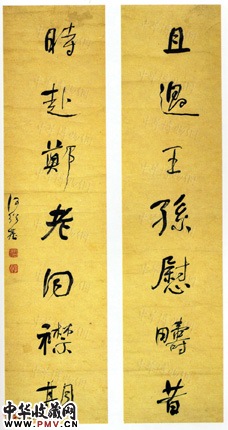 且過王孫慰疇昔
時赴鄭老同襟期
何紹基
中华收藏网
WWW.PMV.CN